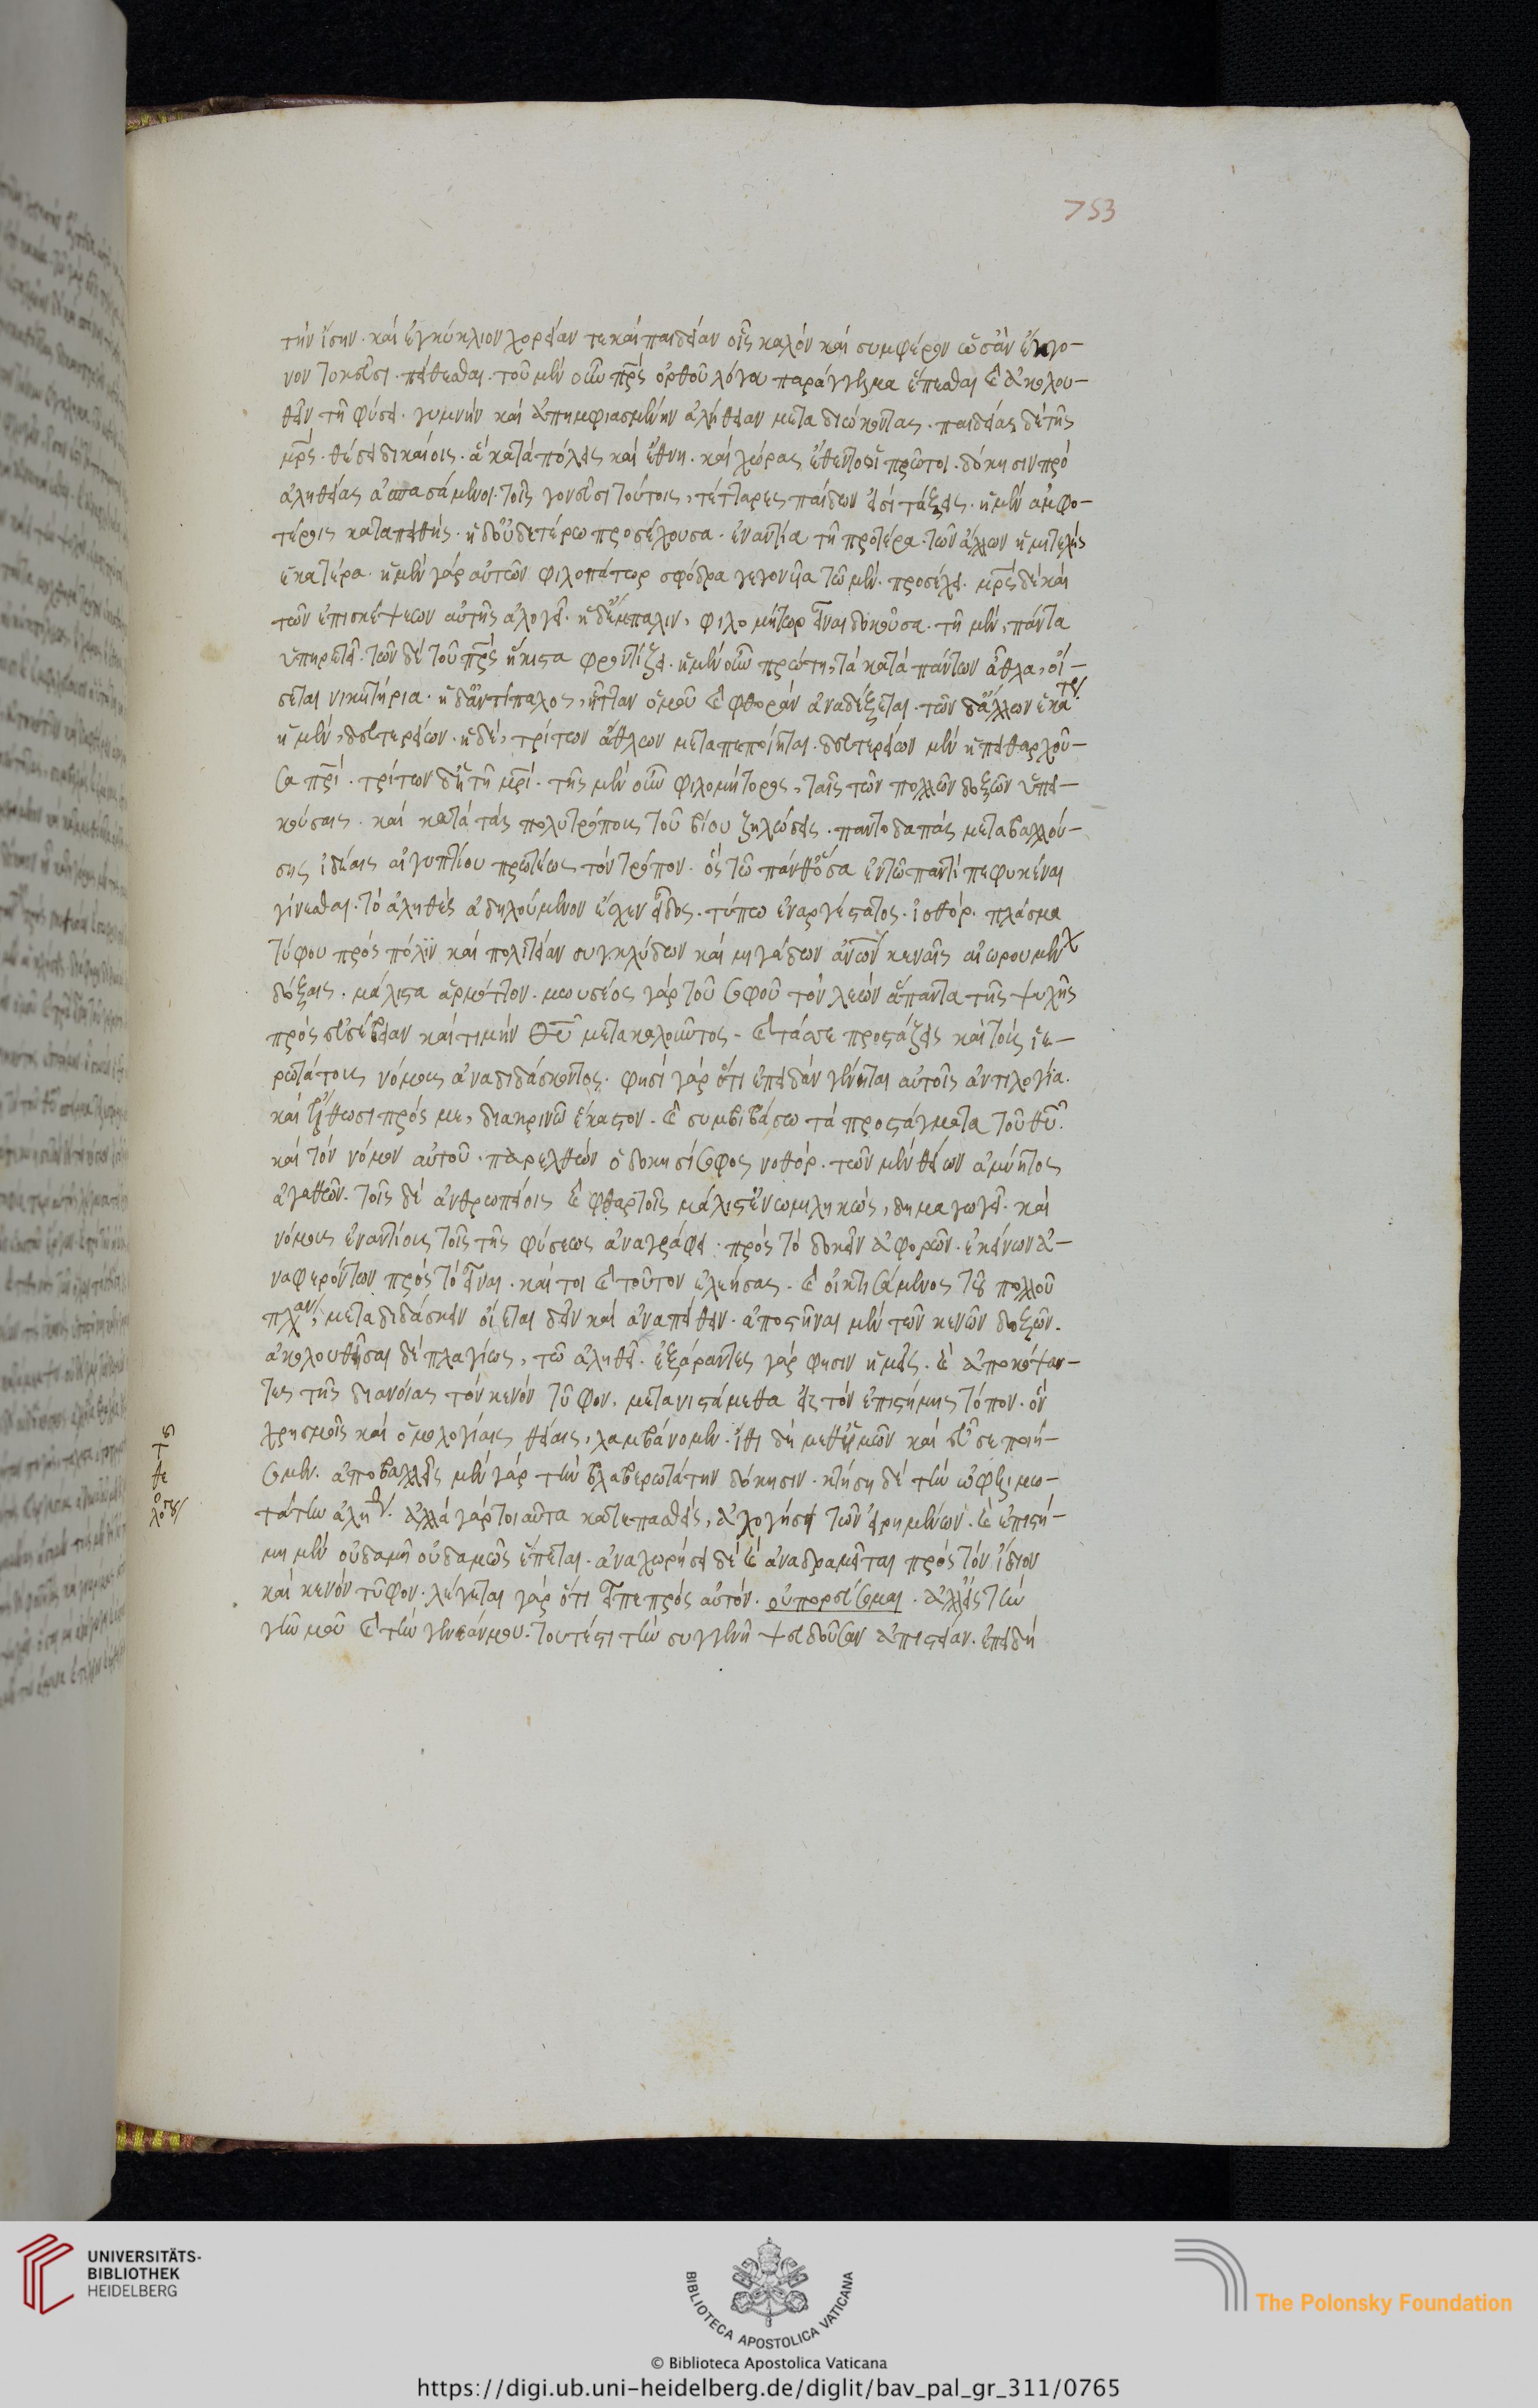 753
τὴν ἴσην· καὶ ἐγκύκλιον χορείαν τε καὶ παιδείαν οἷς καλὸν καὶ συμφέρον ὡς ἂν ἔγγο-
νον τοκεῦσι πείθεσθαι· τοῦ μὲν οὖν πρς ὀρθοῦ λόγου παράγγελμα ἕπεσθαι καὶ ἀκολου-
θεῖν τῇ φύσει· γυμνὴν καὶ ἀπημφιασμένην ἀλήθειαν μεταδιώκοντας· παιδείας δὲ τῆς
μρς· θέσει δικαίοις· ἃ κατὰ πόλεις καὶ ἔθνη· καὶ χώρας ἔθεντο οἱ πρῶτοι· δόκησιν πρὸ
ἀληθείας ἀσπασάμενοι· τοῖς γονεῦσι τούτοις, τέτταρες παίδων εἰσὶ τάξεις· ἡ μὲν ἀμφο-
τέροις καταπειθὴς· ἡ δ' οὐδετέρω προσέχουσα· ἐναντία τῇ προτέρα· τῶν ἄλλων ἡμιτελὴς
ἑκατέρα· ἡ μὲν γὰρ αὐτῶν φιλοπάτωρ σφόδρα γεγονυῖα τῶ μὲν· προσέχει· μρς δὲ καὶ
τῶν ἐπισκέψεων αὐτῆς ἀλογεῖ· ἡ δ' ἔμπαλιν, φιλομήτωρ εἶναι δοκοῦσα· τῇ μὲν, πάντα
ὑπηρετεῖ· τῶν δὲ τοῦ πρς ἥκιστα φροντίζει· ἡ μὲν οὖν πρώτη, τὰ κατὰ πάντων ἆθλα, οἴ-
σεται νικητήρια· ἡ δ' ἀντίπαλος, ἧτταν ὁμοῦ καὶ φθορὰν ἀναδέξεται· τῶν δ' ἄλλων ἑκατέρ
ἡ μὲν, δευτερείων· ἡ δὲ, τρίτων ἄθλων μεταπεποίηται· δευτερείων μὲν ἡ πειθαρχοῦ-
σα πρί· τρίτων δ' ἡ τῇ μρί· τῆς μὲν οὖν φιλομήτορος, ταῖς τῶν πολλῶν δόξων ὑπει-
κούσαις· καὶ κατὰ τὰς πολυτρόπους τοῦ βίου ζηλώσεις· παντοδαπὰς μεταβαλλού-
σης ἰδέαις αἰγυπτίου πρωτέως τὸν τρόπον· ὃς τῶ πάνθ' ὅσα ἐν τῶ παντὶ πεφυκέναι
γίνεσθαι· τὸ ἀληθὲς ἀδηλούμενον ἔσχεν εἶδος· τύπω ἐναργέστατος· ἰοθόρ· πλάσμα
τύφου πρὸς πόλιν καὶ πολιτείαν συγκλύδων καὶ μιγάδων ἀνων κεναῖς αἰωρουμέν
δόξαις· μάλιστα ἁρμόττον· μωυσέος γὰρ τοῦ σοφοῦ τὸν λεὼν ἅπαντα τῆς ψυχῆς
πρὸς εὐσέβειαν καὶ τιμὴν θυ μετακαλοῦντος· καὶ τὰς προστάξεις καὶ τοὺς ἱε-
ρωτάτους νόμους ἀναδιδάσκοντος· φησὶ γὰρ ὅτι ἐπειδὰν γένηται αὐτοῖς ἀντιλογία·
καὶ ἔλθωσι πρός με, διακρινῶ ἕκαστον· καὶ συμβιβάσω τὰ προστάγματα τοῦ θυ·
καὶ τὸν νόμον αὐτοῦ· παρελθὼν ὁ δοκησίσοφος ἰοθόρ· τῶν μὲν θείων ἀμύητος
ἀγαθῶν· τοῖς δὲ ἀνθρωπείοις καὶ φθαρτοῖς μάλιστ' ἐνωμιληκὼς, δημαγωγεῖ· καὶ
νόμους ἐναντίους τοῖς τῆς φύσεως ἀναγράφει· πρὸς τὸ δοκεῖν ἀφορῶν· ἐκείνων ἀ-
ναφερόντων πρὸς τὸ εἶναι· καί τοι καὶ τοῦτον ἐλεήσας· καὶ οἰκτισάμενος τοῦ πολλοῦ
πλάν, μεταδιδάσκειν οἴεται δεῖν καὶ ἀναπείθειν· ἀποστῆναι μὲν τῶν κενῶν δοξῶν·
ἀκολουθῆσαι δὲ πλαγίως, τῶ ἀληθεῖ· ἐξάραντες γὰρ φησιν ἡμεῖς· καὶ ἀποκόψαν-
τες τῆς διανοίας τὸν κενὸν τῦφον, μετανιστάμεθα εἰς τὸν ἐπιστήμης τόπον· ὃν
χρησμοῖς καὶ ὁμολογίαις θείαις, λαμβάνομεν· ἴθι δὴ μεθ' ἡμῶν καὶ εὖ σε ποιή-
σομεν· ἀποβαλλεῖς μὲν γὰρ τὴν βλαβερωτάτην δόκησιν· κτήση δὲ τὴν ὠφελιμω-
τάτην ἀλήθ· ἀλλὰ γὰρ τοιαῦτα κατεπασθεὶς, ἀλογήσει τῶν εἰρημένων· καὶ ἐπιστή-
μη μὲν οὐδαμῇ οὐδαμῶς ἕπεται· ἀναχωρήσει δὲ καὶ ἀναδραμεῖται πρὸς τὸν ἴδιον
καὶ κενὸν τῦφον· λέγεται γὰρ ὅτι εἶπε πρὸς αὐτόν· οὐ πορεύσομαι· ἀλλ' εἰς τὴν
γῆν μοῦ καὶ τὴν γενεάν μου· τουτέστι τὴν συγγενῆ ψευδοῦσαν ἀπιστίαν· ἐπειδὴ
UNIVERSITÄTS-
BIBLIOTHEK
HEIDELBERG
BIBLIOTECA APOSTOLICA VATICANA
The Polonsky Foundation
© Biblioteca Apostolica Vaticana
https://digi.ub.uni-heidelberg.de/diglit/bav_pal_gr_311/0765